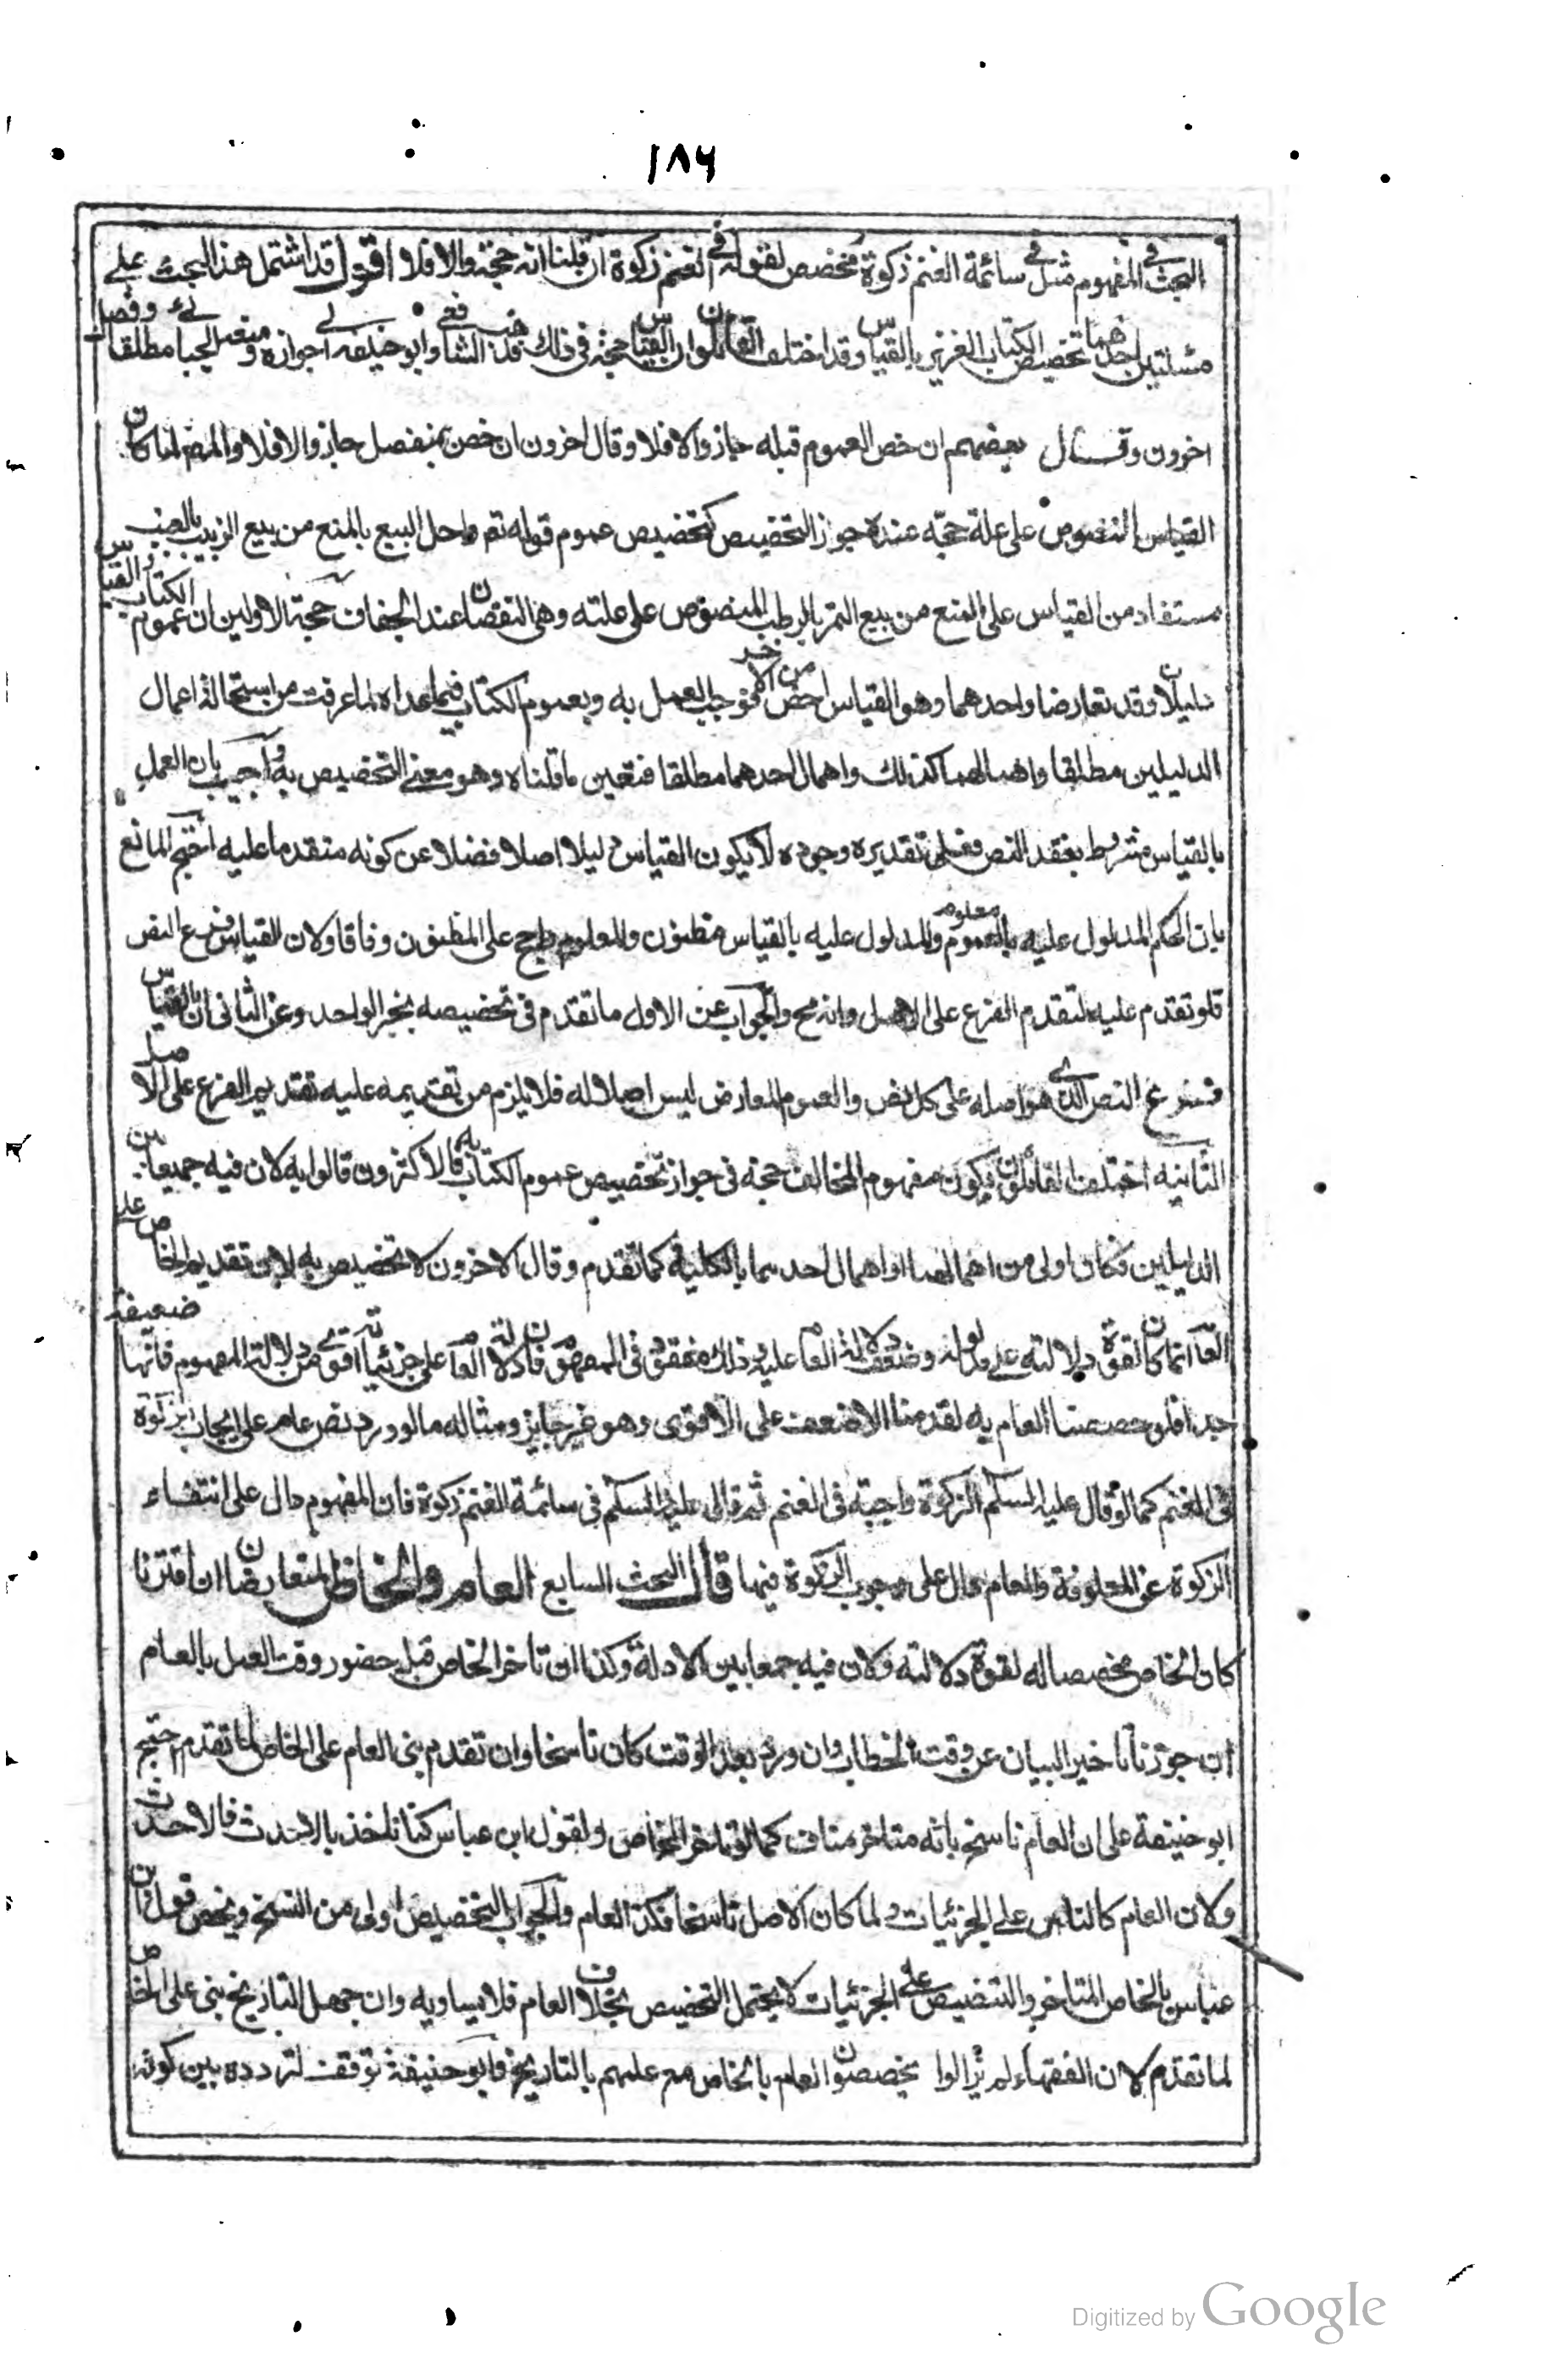 ١٨٦
البحث فى المفهوم مثل فى سائمة الغنم زكوة مخصص لقوله فى الغنم زكوة ان قلنا انه حجة والا فلا اقول قد اشتمل هذا البحث على
مسئلتين احدهما تخصيص الكتاب العزيز بالقياس وقد اختلف القائلون ان القياس حجة فى ذلك فذهب الشافعى وابو حنيفه الى جوازه ومنعه الجبائى مطلقا وفصل
اخرون وقال بعضهم ان خص العموم قبله جاز والا فلا وقال اخرون ان خص بمنفصل جاز والا فلا والمصنف لما كان
القياس المنصوص على علة حجة عنده جوز التخصيص كتخصيص عموم قوله تعم واحل البيع بالمنع من بيع الزبيب بالعنب
مستفاد من القياس على المنع من بيع التمر بالرطب المنصوص على علته وهى النقصان عند الجفاف حجة الاولين ان عموم الكتاب والقياس
دليلان وقد تعارضا واحدهما وهو القياس اخص من الاخر فوجب العمل به وبعموم الكتاب فيما عداه لما عرفت من استحالة اعمال
الدليلين مطلقا واهمالهما كذلك واهمال احدهما مطلقا فتعين ما قلناه وهو معنى التخصيص به واجيب بان العمل
بالقياس مشروط بفقد النص فعلى تقديره وجوده لا يكون القياس دليلا اصلا فضلا عن كونه متقدما عليه احتج المانع
بان الحكم المدلول عليه بالعموم معلوم والمدلول عليه بالقياس مظنون والمعلوم راجح على المظنون وفاقا ولان القياس فرع النص
فلو تقدم عليه لتقدم الفرع على الاصل وانه مح والجواب عن الاول ما تقدم فى تخصيصه بخبر الواحد وعن الثانى ان القياس
فرع النص الذى هو اصله على كل نص والعموم المعارض ليس اصلا له فلا يلزم من تقديمه عليه تقديم الفرع على الاصل
الثانيه اختلف القائلون بكون مفهوم المخالفة حجة فى جواز تخصيص عموم الكتاب به فالاكثرون قالوا به لان فيه جمعا بين
الدليلين فكان اولى من اهمالهما او اهمال احدهما بالكلية كما تقدم وقال الاخرون لا تخصيص به لان تقديم الخاص على
العام انما كان لقوة دلالته على مدلوله وضعف دلالة العام عليه وذلك مفقود فى المفهوم فان دلالة العام على جزئياته اقوى من دلالة المفهوم فانها ضعيفة
جدا فلو خصصنا العام به لقدمنا الاضعف على الاقوى وهو غير جايز ومثاله ما لو ورد نص عام على ايجاب الزكوة
فى الغنم كما لو قال عليه السلم الزكوة واجبة فى الغنم ثم قال عليه السلم فى سائمة الغنم زكوة فان المفهوم دال على انتفاء
الزكوة عن المعلوفة والعام دال على وجوب الزكوة فيها قال البحث السابع العام والخاص المتعارضان ان اقترنا
كان الخاص مخصصا له لقوة دلالته ولان فيه جمعا بين الادلة وكذا ان تاخر الخاص قبل حضور وقت العمل بالعام
ان جوزنا تاخير البيان عن وقت الخطاب وان ورد بعد الوقت كان ناسخا وان تقدم بنى العام على الخاص لما تقدم احتج
ابو حنيفة على ان العام ناسخ بانه متاخر مناف كما لو تاخر الخاص ولقول ابن عباس كنا ناخذ بالاحدث فالاحدث
ولان العام كالناص على الجزئيات ولما كان الاصل ناسخا فكذا العام والجواب التخصيص اولى من النسخ ويخص قول ابن
عباس بالخاص المتاخر والتنصيص على الجزئيات لا يحتمل التخصيص بخلاف العام فلا يساويه وان جهل التاريخ بنى على الخاص
لما تقدم لان الفقهاء لم يزالوا يخصصون العام بالخاص مع علمهم بالتاريخ وابو حنيفة توقف لتردده بين كونه
Digitized by Google